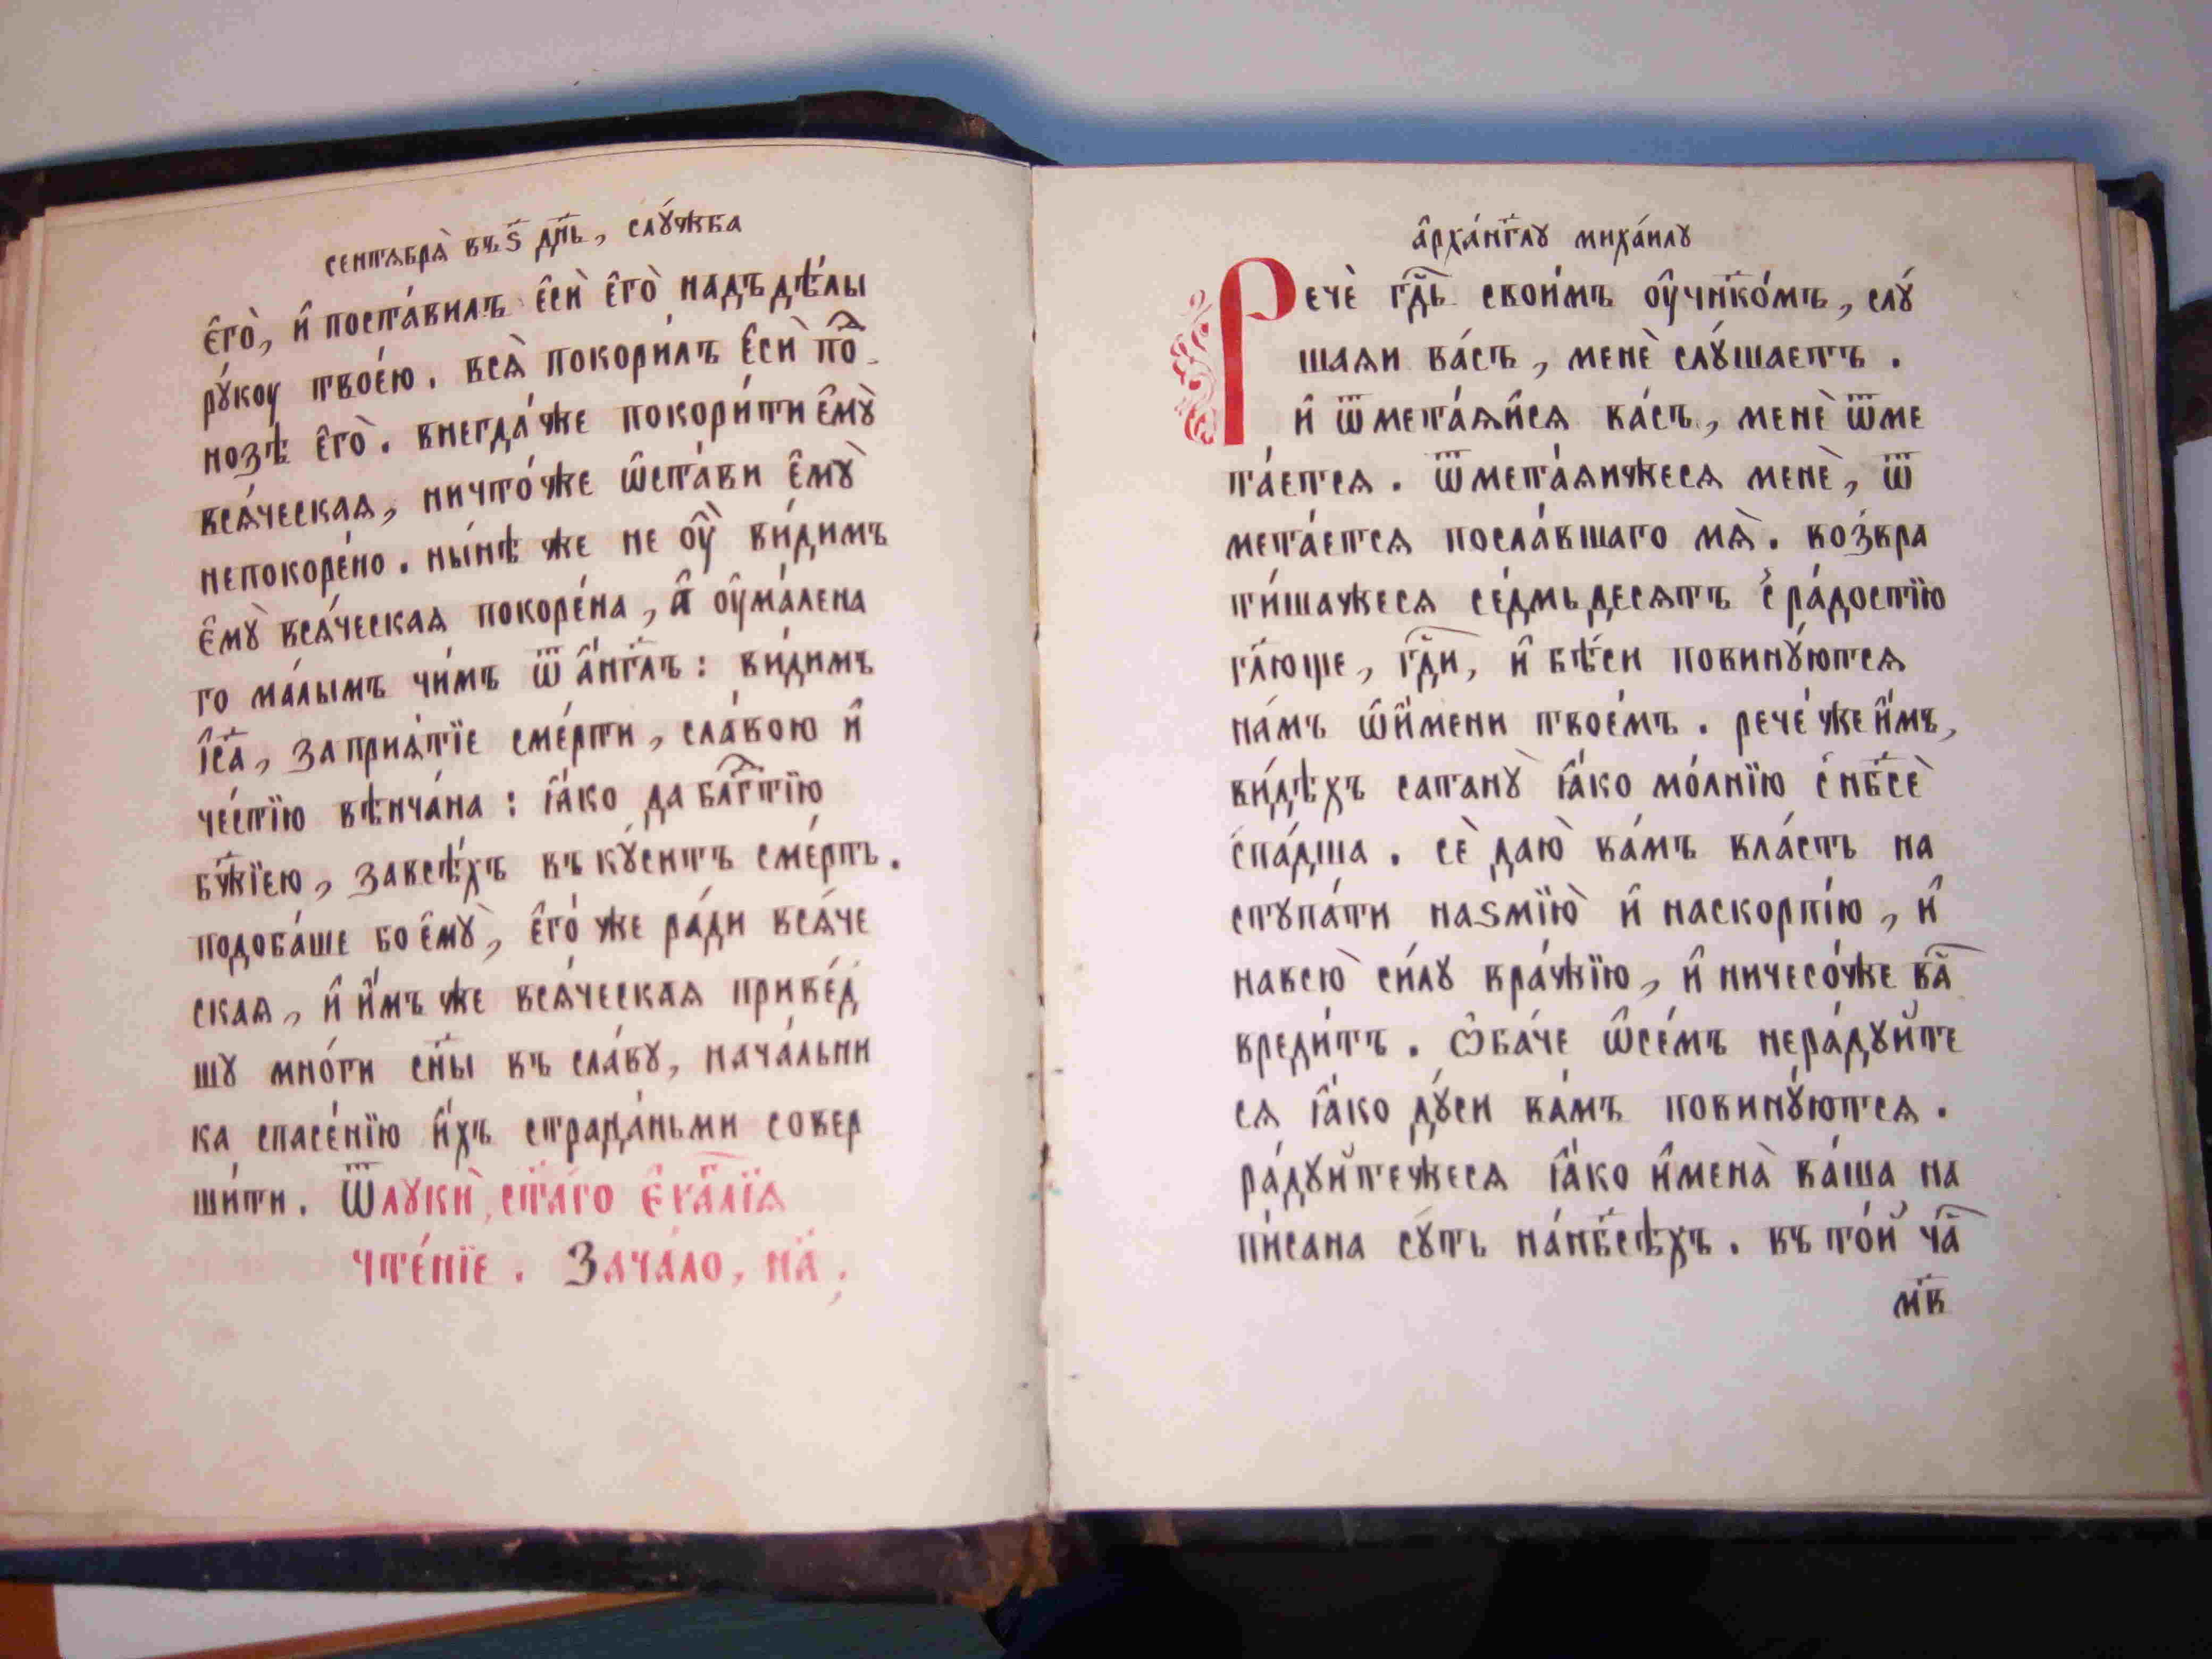 сентѧбрѧ̀ въ ѕ҃ дн҃ь, слꙋ́жба
є҆го̀, и҆ поста́вилъ є҆сѝ є҆го̀ надъ дѣ́лы
рꙋ́кѹ твое́ю. всѧ̀ покори́лъ є҆сѝ поⷣ
нозѣ є҆го̀. внегда́ же покори́ти є҆мꙋ̀
всѧ́ческаѧ, ничто́же ѡ҆ста́ви є҆мꙋ̀
непокоре́но. ны́нѣ же не ѹ҆̀ ви́димъ
є҆мꙋ̀ всѧ́ческаѧ покоре́на, а҆ ѹ҆ма́лена
го ма́лымъ чи́мъ ѿ а҆́нгг҃лъ: ви́димъ
і҆с҃а, за приѧ́тїе сме́рти, сла́вою и҆
че́стїю вѣнча́на: ꙗ҆́ко да блгⷣтїю
бж҃їею, за всѣ́хъ въкꙋ́ситъ сме́рть.
подоба́ше бо є҆мꙋ̀, є҆го́ же ра́ди всѧ́че
скаѧ, и҆ и҆́мъ же всѧ́ческаѧ приве́д
шꙋ мно́ги сн҃ы въ сла́вꙋ, нача́льни
ка спасе́нїю и҆́хъ страда́ньми совер
ши́ти. Ѿ лꙋкѝ, ст҃а́го є҆ѵⷢ҇а́лїѧ
чте́нїе. Зача́ло, н҃а.
а҆рха́нг҃лꙋ миха́илꙋ
Речѐ гдⷭ҇ь свои́мъ ѹ҆чн҃ко́мъ, слꙋ́
шаѧи ва́съ, менѐ слꙋ́шаетъ.
и҆ ѿмета́ѧи҆сѧ ва́съ, менѐ ѿме
та́етсѧ. ѿмета́ѧижесѧ менѐ, ѿ
мета́етсѧ посла́вшаго мѧ̀. возвра
ти́шажесѧ се́дмьдесѧтъ с̾ ра́достїю
гл҃юще, гдⷭ҇и, и҆ бѣ́си повинꙋ́ютсѧ
на́мъ ѡ҆ и҆́мени твое́мъ. рече́ же и҆́мъ,
ви́дѣхъ сатанꙋ̀ ꙗ҆́ко мо́лнїю с̾ нб҃сѐ
спа́дша. сѐ даю̀ ва́мъ вла́сть на
стꙋпа́ти на ѕмїю̀ и҆ на скорпі́ю, и҆
на всю̀ си́лꙋ вра́жїю, и҆ ничесо́же ваⷭ
вреди́тъ. Ѻ҆ба́че ѡ҆ се́мъ не ра́дꙋйте
сѧ ꙗ҆́ко дꙋ́си ва́мъ повинꙋ́ютсѧ.
ра́дꙋйтежесѧ ꙗ҆́ко и҆менà ва́ша на
пи́сана сꙋть на́ нб҃сѣхъ. въ то́й чаⷭ
м҃в